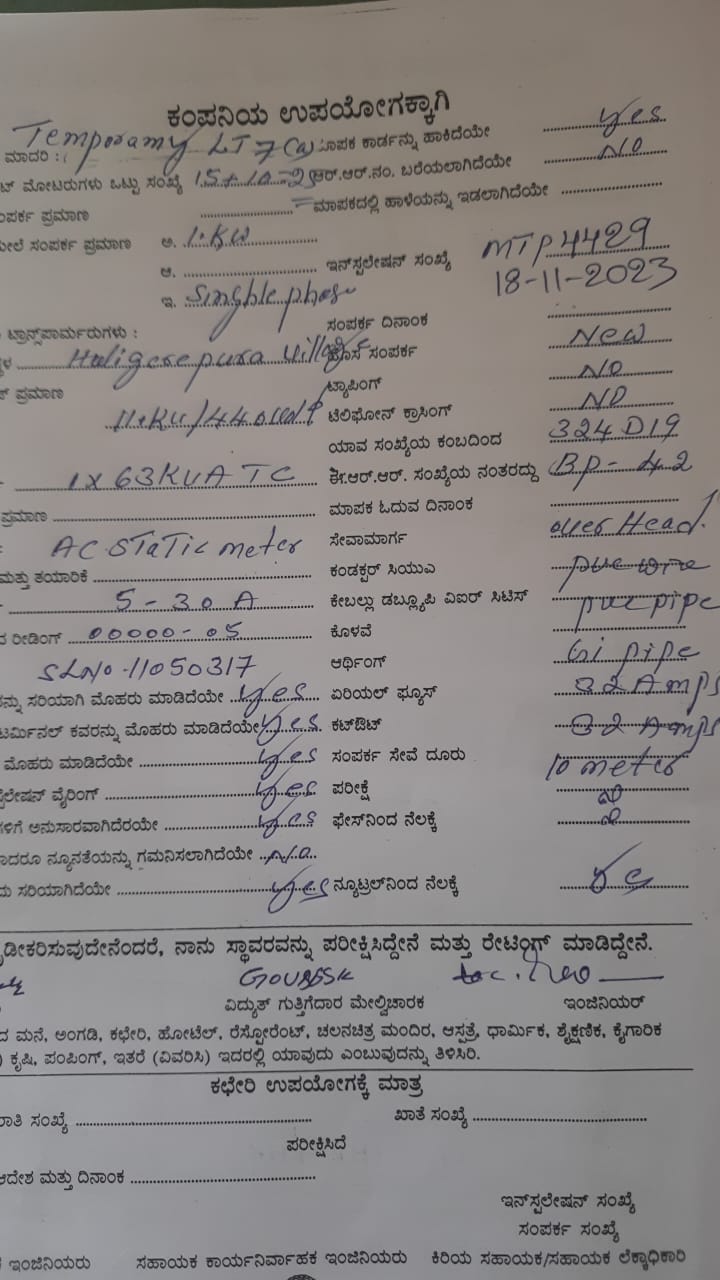 ಕಂಪನಿಯ ಉಪಯೋಗಕ್ಕಾಗಿ
ಮಾದರಿ : Temporamy LT 7(a) ಮಾಪಕ ಕಾರ್ಡನ್ನು ಹಾಕಿದೆಯೇ yes
ಮೋಟರುಗಳು ಒಟ್ಟು ಸಂಖ್ಯೆ 15+10=25 ಆರ್.ಆರ್.ನಂ. ಬರೆಯಲಾಗಿದೆಯೇ NO
ಸಂಪರ್ಕ ಪ್ರಮಾಣ ಮಾಪಕದಲ್ಲಿ ಹಾಳೆಯನ್ನು ಇಡಲಾಗಿದೆಯೇ
ಮೇಲೆ ಸಂಪರ್ಕ ಪ್ರಮಾಣ ಅ. 1.KW
ಆ. ಇನ್‌ಸ್ಟಲೇಷನ್ ಸಂಖ್ಯೆ MTP4429
ಇ. Singhle phase 18-11-2023
ಟ್ರಾನ್ಸ್‌ಪಾರ್ಮರುಗಳು : ಸಂಪರ್ಕ ದಿನಾಂಕ
Huligerepura Village ಹೊಸ ಸಂಪರ್ಕ New
ಪ್ರಮಾಣ ಟ್ಯಾಪಿಂಗ್ NO
11.KV/440 ಟೆಲಿಫೋನ್ ಕ್ರಾಸಿಂಗ್ NO
ಯಾವ ಸಂಖ್ಯೆಯ ಕಂಬದಿಂದ 324D19
1X63KVA TC ಈ.ಆರ್.ಆರ್. ಸಂಖ್ಯೆಯ ನಂತರದ್ದು BP-42
ಪ್ರಮಾಣ ಮಾಪಕ ಓದುವ ದಿನಾಂಕ
AC STaTic meter ಸೇವಾಮಾರ್ಗ over Head.
ಮತ್ತು ತಯಾರಿಕೆ ಕಂಡಕ್ಟರ್ ಸಿಯುಎ pvc wire
5-30A ಕೇಬಲ್ಲು ಡಬ್ಲ್ಯೂಪಿ ವಿಐರ್ ಸಿಟಿಸ್ pvc pipe
ರೀಡಿಂಗ್ 00000-05 ಕೊಳವೆ
SLNO-11050317 ಆರ್ಥಿಂಗ್ Gi pipe
ಸರಿಯಾಗಿ ಮೊಹರು ಮಾಡಿದೆಯೇ yes ಏರಿಯಲ್ ಫ್ಯೂಸ್ 32 Amps
ಟರ್ಮಿನಲ್ ಕವರನ್ನು ಮೊಹರು ಮಾಡಿದೆಯೇ yes ಕಟ್‌ಔಟ್ 32 Amps
ಮೊಹರು ಮಾಡಿದೆಯೇ yes ಸಂಪರ್ಕ ಸೇವೆ ದೂರು 10 meter
ವೈರಿಂಗ್ yes ಪರೀಕ್ಷೆ
ಅನುಸಾರವಾಗಿದೆರಯೇ yes ಫೇಸ್‌ನಿಂದ ನೆಲಕ್ಕೆ
ನ್ಯೂನತೆಯನ್ನು ಗಮನಿಸಲಾಗಿದೆಯೇ
ಸರಿಯಾಗಿದೆಯೇ yes ನ್ಯೂಟ್ರಲ್‌ನಿಂದ ನೆಲಕ್ಕೆ
ದೃಡೀಕರಿಸುವುದೇನೆಂದರೆ, ನಾನು ಸ್ಥಾವರವನ್ನು ಪರೀಕ್ಷಿಸಿದ್ದೇನೆ ಮತ್ತು ರೇಟಿಂಗ್ ಮಾಡಿದ್ದೇನೆ.
ವಿದ್ಯುತ್ ಗುತ್ತಿಗೆದಾರ ಮೇಲ್ವಿಚಾರಕ ಇಂಜಿನಿಯರ್
ಮನೆ, ಅಂಗಡಿ, ಕಛೇರಿ, ಹೋಟೆಲ್, ರೆಸ್ಟೋರೆಂಟ್, ಚಲನಚಿತ್ರ ಮಂದಿರ, ಆಸ್ಪತ್ರೆ, ಧಾರ್ಮಿಕ, ಶೈಕ್ಷಣಿಕ, ಕೈಗಾರಿಕ
) ಕೃಷಿ, ಪಂಪಿಂಗ್, ಇತರೆ (ವಿವರಿಸಿ) ಇದರಲ್ಲಿ ಯಾವುದು ಎಂಬುವುದನ್ನು ತಿಳಿಸಿರಿ.
ಕಛೇರಿ ಉಪಯೋಗಕ್ಕೆ ಮಾತ್ರ
ಸಂಖ್ಯೆ ಖಾತೆ ಸಂಖ್ಯೆ
ಪರೀಕ್ಷಿಸಿದೆ
ಆದೇಶ ಮತ್ತು ದಿನಾಂಕ
ಇನ್‌ಸ್ಟಲೇಷನ್ ಸಂಖ್ಯೆ
ಸಂಪರ್ಕ ಸಂಖ್ಯೆ
ಇಂಜಿನಿಯರು ಸಹಾಯಕ ಕಾರ್ಯನಿರ್ವಾಹಕ ಇಂಜಿನಿಯರು ಕಿರಿಯ ಸಹಾಯಕ/ಸಹಾಯಕ ಲೆಕ್ಕಾಧಿಕಾರಿ